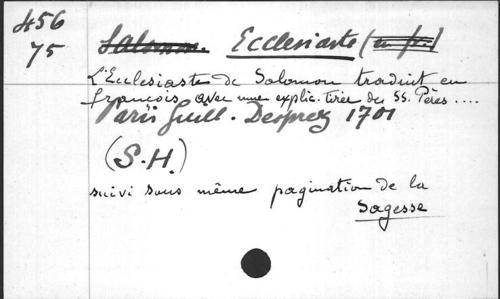 456
75
Salomon. Ecclesiaste (en fr.)
L'Ecclesiaste de Salomon traduit en
françois avec une explic. tirée des SS. Pères ....
Paris Guill. Desprez 1701
(S.H.)
suivi sous même pagination de la
Sagesse